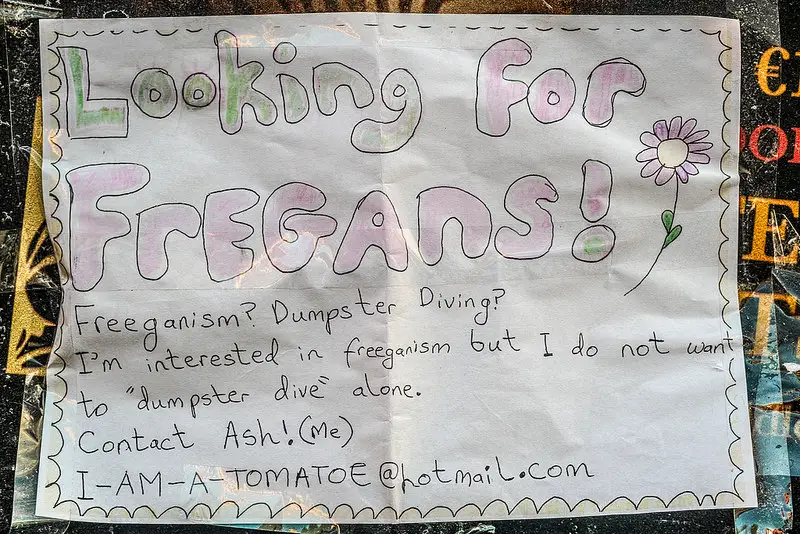 Looking for
FREGANS!
Freeganism? Dumpster Diving?
I'm interested in freeganism but I do not want
to "dumpster dive" alone.
Contact Ash! (Me)
I-AM-A-TOMATOE@hotmail.com